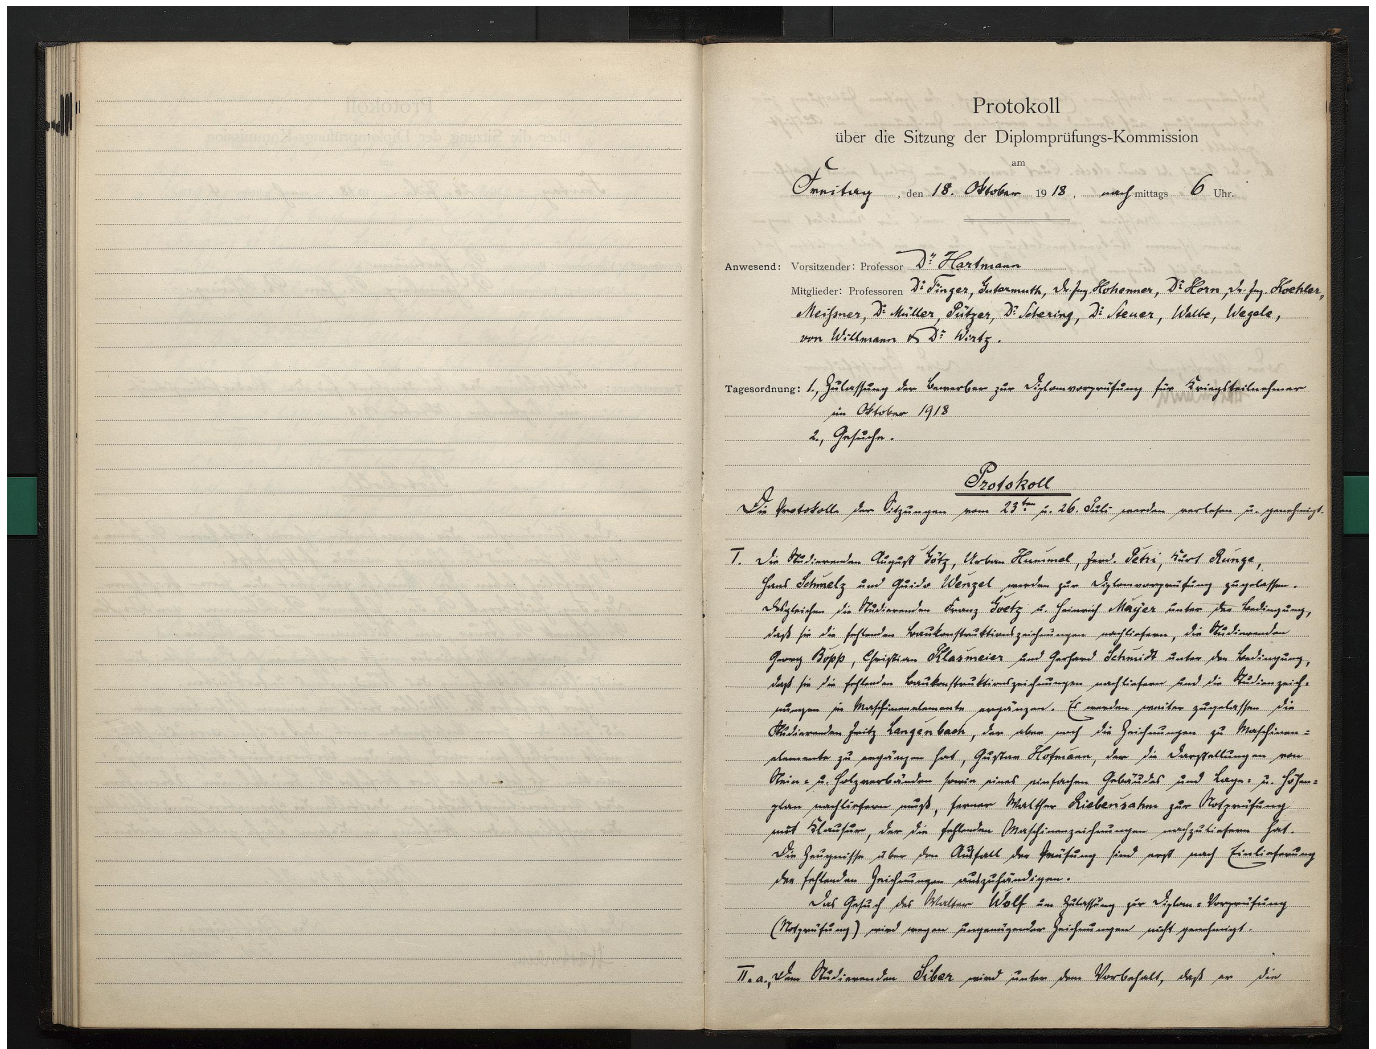 Protokoll
über die Sitzung der Diplomprüfungs-Kommission
am
Freitag, den 18. Oktober 1918, nachmittags 6 Uhr.
Anwesend: Vorsitzender: Professor Dr Hartmann
Mitglieder: Professoren Dr Finger, Gutermuth, Dr. Ing. Hohenner, Dr Horn, Dr. Ing. Koehler,
Meißner, Dr Müller, Pützer, Dr Schering, Dr Steuer, Walbe, Wegele,
von Willmann & Dr Wirtz.
Tagesordnung: 1., Zulassung der Bewerber zur Diplomvorprüfung für Kriegsteilnehmer
im Oktober 1918
2., Gesuche.
Protokoll
Die Protokolle der Sitzungen vom 23ten u. 26. Juli werden verlesen u. genehmigt.
I. Die Studierenden August Götz, Urban Hummel, Ferd. Petri, Kurt Runge,
Hans Schmelz und Guido Wenzel werden zur Diplomvorprüfung zugelassen.
Desgleichen die Studierenden Franz Goetz u. Heinrich Mayer unter der Bedingung,
daß sie die fehlenden Baukonstruktionszeichnungen nachliefern, die Studierenden
Georg Bopp, Christian Klasmeier und Gerhard Schmidt unter der Bedingung,
daß sie die fehlenden Baukonstruktionszeichnungen nachliefern und die Studienzeich-
nungen in Maschinenelemente ergänzen. Es werden weiter zugelassen die
Studierenden Fritz Langenbach, der aber noch die Zeichnungen zu Maschinen=
elemente zu ergänzen hat, Gustav Hofmann, der die Darstellungen von
Stein= u. Holzverbänden sowie eines einfachen Gebäudes und Lage= u. Höhen=
plan nachliefern muß, ferner Walther Liebensahm zur Notprüfung
mit Klausur, der die fehlenden Maschinenzeichnungen nachzuliefern hat.
Die Zeugnisse über den Ausfall der Prüfung sind erst nach Einlieferung
der fehlenden Zeichnungen auszuhändigen.
Das Gesuch des Walter Wolf um Zulassung zur Diplom=Vorprüfung
(Notprüfung) wird wegen ungenügender Zeichnungen nicht genehmigt.
II. a., Dem Studierenden Siber wird unter dem Vorbehalt, daß er die